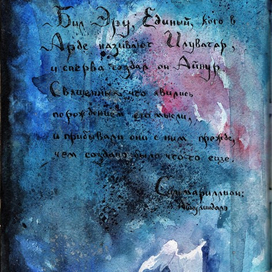 Был Эру, Единый, кого в
Арде называют Илуватар,
и сперва создал он Айнур,
Священных, что явились
порождением его мысли,
и пребывали они с ним прежде,
чем создано было что-то ещё.
Сильмариллион:
Айнулиндалэ